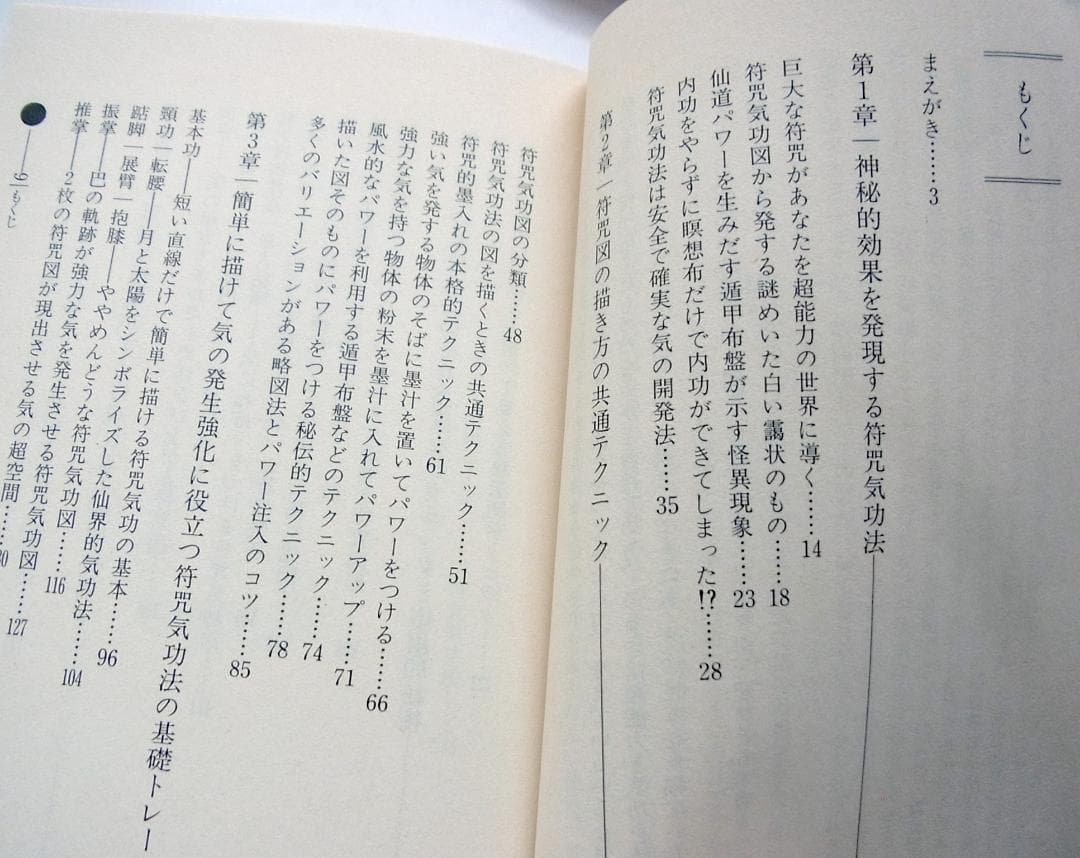 もくじ
まえがき……3
第1章―神秘的効果を発現する符咒気功法
巨大な符咒があなたを超能力の世界に導く……14
符咒気功図から発する謎めいた白い靄状のもの……18
仙道パワーを生みだす遁甲布盤が示す怪異現象……23
内功をやらずに瞑想布だけで内功ができてしまった!?……28
符咒気功法は安全で確実な気の開発法……35
第2章―符咒図の描き方の共通テクニック
符咒気功図の分類……48
符咒気功法の図を描くときの共通テクニック……51
符咒的墨入れの本格的テクニック……61
強い気を発する物体のそばに墨汁を置いてパワーをつける……66
強力な気を持つ物体の粉末を墨汁に入れてパワーアップ……71
風水的なパワーを利用する遁甲布盤などのテクニック……74
描いた図そのものにパワーをつける秘伝的テクニック……78
多くのバリエーションがある略図法とパワー注入のコツ……85
第3章―簡単に描けて気の発生強化に役立つ符咒気功法の基礎トレー
基本功――短い直線だけで簡単に描ける符咒気功の基本……96
頸功―転腰――月と太陽をシンボライズした仙界的気功法……104
踮脚―展臂―抱膝――ややめんどうな符咒気功図……116
振掌――巴の軌跡が強力な気を発生させる符咒気功図……127
推掌――2枚の符咒図が現出させる気の超空間……
9―もくじ